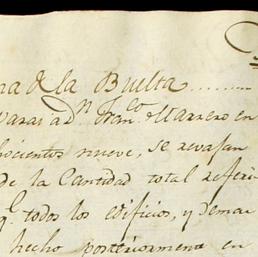 ma de la Buelta........
Varas a Dn Franco Marrero en
hocientos nueve, se revasan
de la Cantidad total referi
qe todos los edificios, y demas
hecho posteriormente en